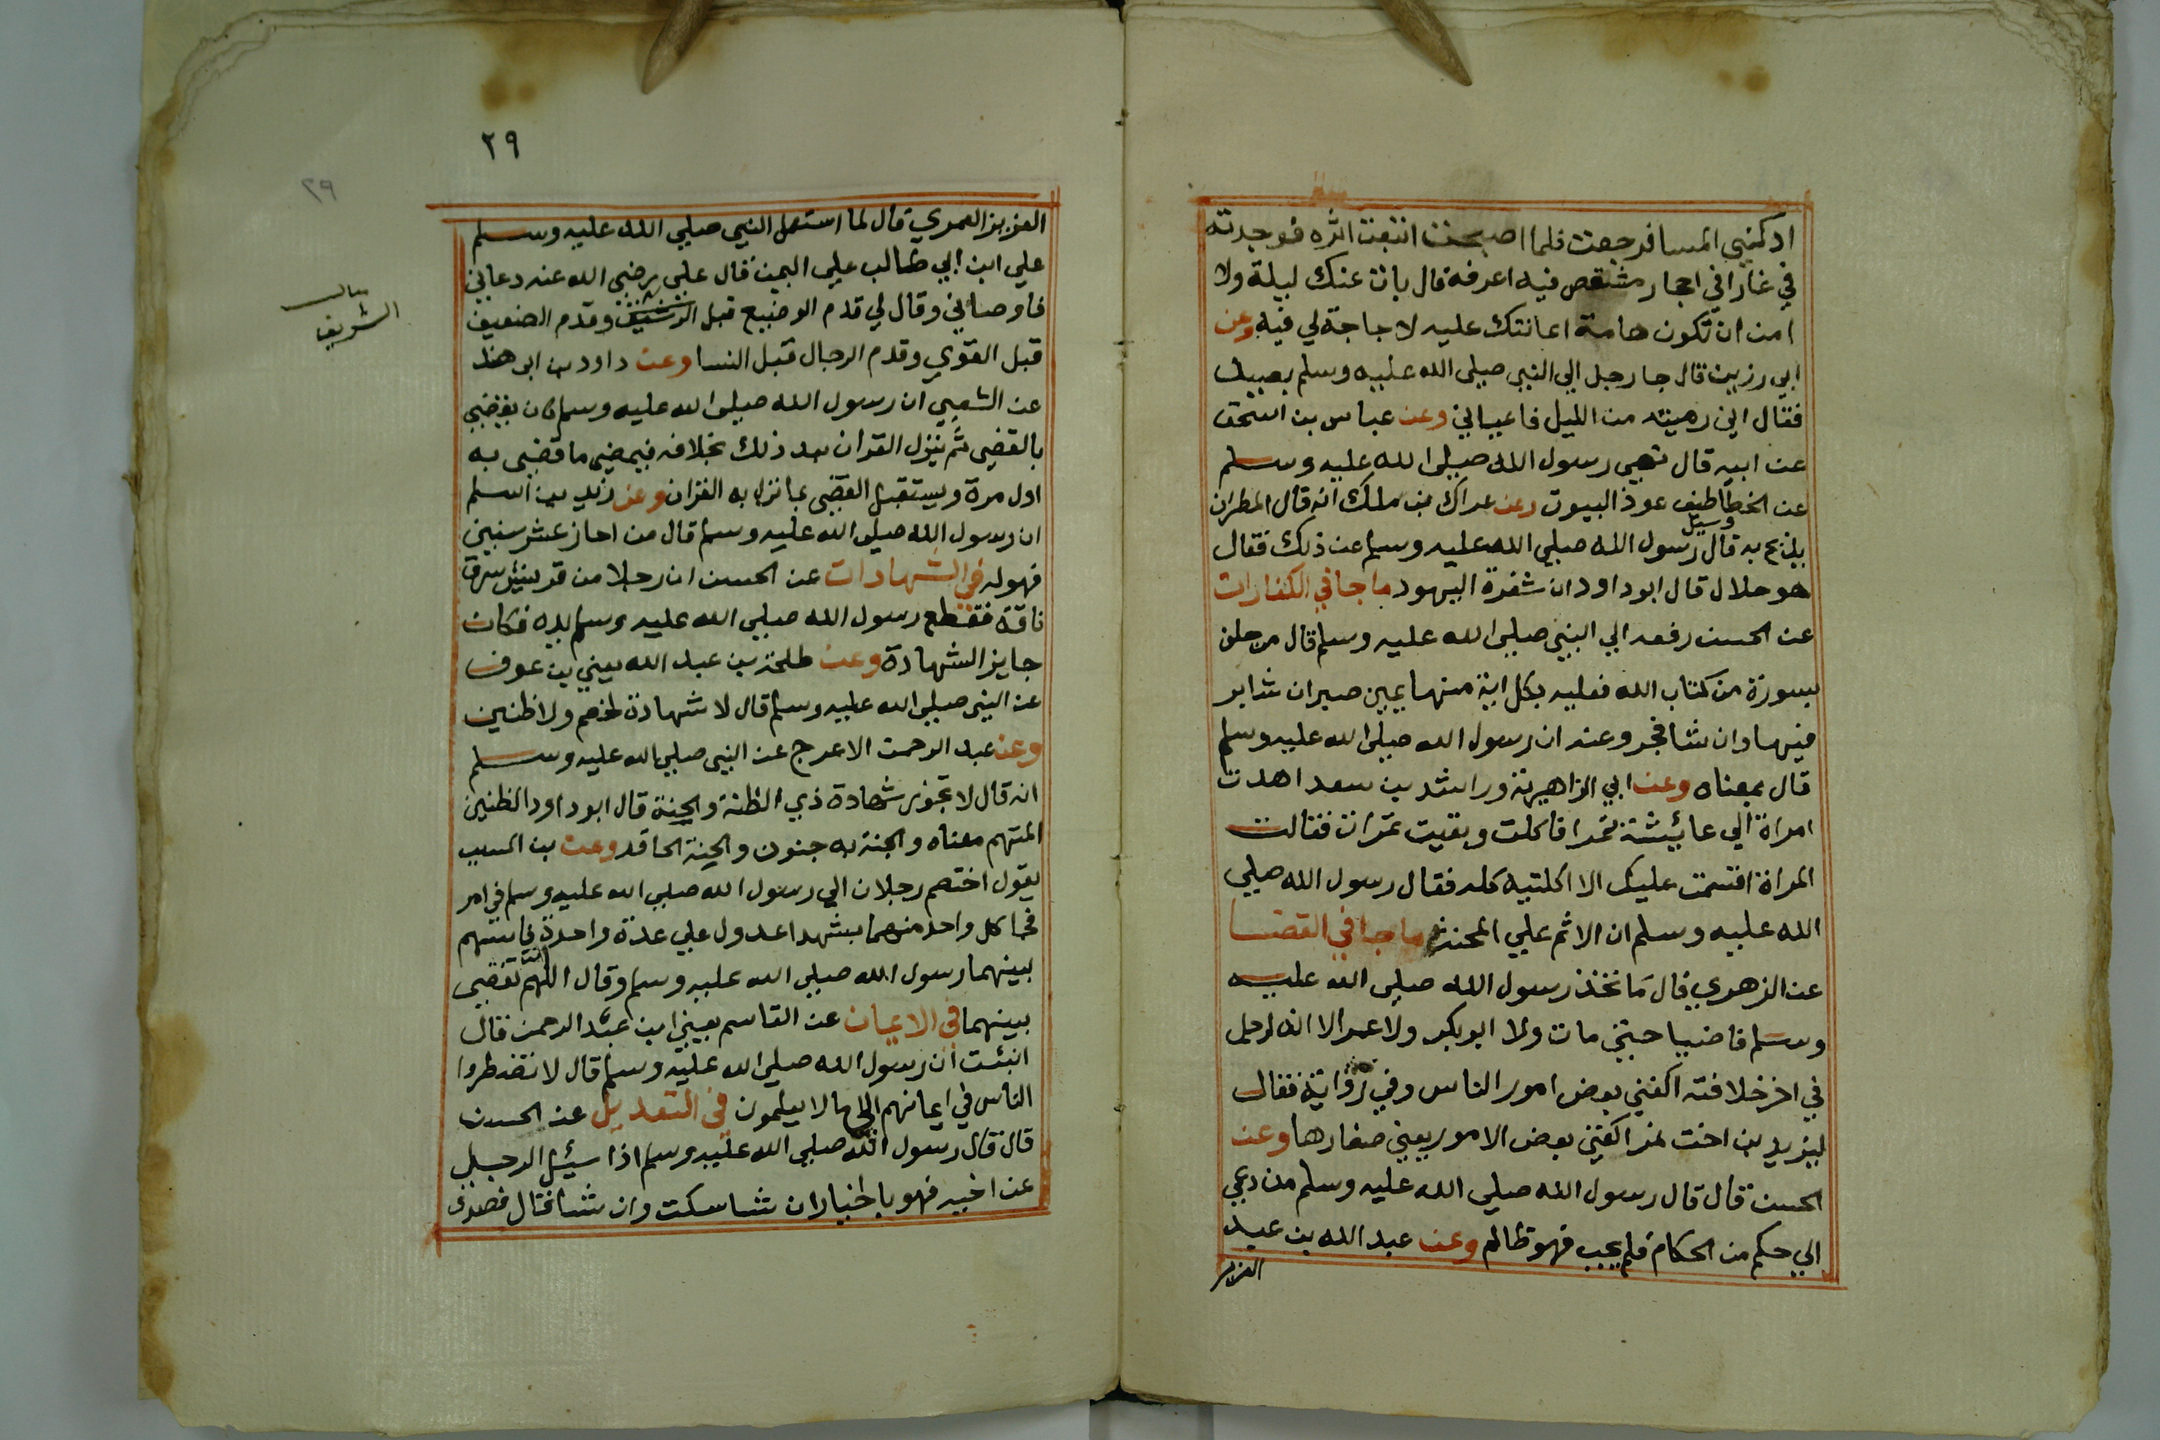 ادكني المسا فرجعت فلما اصبحت اتبعت اثره فوجدته
في غار افي احجار مشقص فيه اعرفه قال بات عنك ليلة ولا
امن ان تكون هامة اعانتك عليه لا حاجة لي فيه وعن
ابي رزين قال جا رجل الي النبي صلي الله عليه وسلم بصيد
فقال اني رميته من الليل فاعياني وعن عباس بن اسحق
عن ابيه قال نهي رسول الله صلي الله عليه وسلم
عن الخطاطيف عوذ البيوت وعن عراك بن ملك انه قال
يذبح به قال وسيل رسول الله صلي الله عليه وسلم عن ذلك فقال
هو حلال قال ابو داود ان شفرة اليهود ما جا في الكفارات
عن الحسن رفعه الي النبي صلي الله عليه وسلم قال من حلف
بسورة من كتاب الله فعليه بكل اية منها يمين صبر ان شا بر
فيها وان شا فجر وعنه ان رسول الله صلي الله عليه وسلم
قال بمعناه وعن ابي الزاهرية وراشد بن سعد اهدت
امراة الي عائيشة تمرا فاكلت وبقيت تمرات فقالت
المراة اقسمت عليك الا اكلتيه كله فقال رسول الله صلي
الله عليه وسلم ان الاثم علي المحنث ما جا في القضا
عن الزهري قال ما تخذ رسول الله صلي الله عليه
وسلم قاضيا حتي مات ولا ابو بكر ولا عمر الا انه لرجل
في اخر خلافته اكفني بعض امور الناس وفي رواية فقال
ليزيد بن اخت نمر اكفني بعض الامور يعني صغارها وعن
الحسن قال قال رسول الله صلي الله عليه وسلم من دعي
الي حكم من الحكام فلم يجب فهو ظالم وعن عبد الله بن عبد
العزيز
٢٩
٢٩
العزيز العمري قال لما استعمل النبي صلي الله عليه وسلم
علي ابن ابي طالب علي اليمن قال علي رضي الله عنه دعاني
فاوصاني وقال لي قدم الوضيع قبل الشريف وقدم الضعيف
الشريف
قبل القوي وقدم الرجال قبل النسا وعن داود بن ابي هند
عن الشعبي ان رسول الله صلي الله عليه وسلم كان يقضي
بالقضي ثم ينزل القران بعد ذلك بخلافه فيمضي ما قضي به
اول مرة ويستقبل القضي بما نزل به القران وعن زيد بن اسلم
ان رسول الله صلي الله عليه وسلم قال من احاز عشر سنين
فهو له في الشهادات عن الحسن ان رجلا من قريش سرق
ناقة فقطع رسول الله صلي الله عليه وسلم يده فكان
جايز الشهادة وعن طلحة بن عبد الله يعني بن عوف
عن النبي صلي الله عليه وسلم قال لا شهادة لخصم ولا ظنين
وعن عبد الرحمن الاعرج عن النبي صلي الله عليه وسلم
انه قال لا تجوز شهادة ذي الظنة والجنة قال ابو داود الظنين
المتهم معناه والجنة به جنون والحنة الحاقد وعن بن المسيب
يقول اختصم رجلان الي رسول الله صلي الله عليه وسلم في امر
فجا كل واحد منهما بشهدا عدول علي عدة واحدة فاسهم
بينهما رسول الله صلي الله عليه وسلم وقال اللهم انت تقضي
بينهما في الايمان عن القاسم يعني ابن عبد الرحمن قال
انبئت ان رسول الله صلي الله عليه وسلم قال لا تضطروا
الناس في ايمانهم الي ما لا يعلمون في التعديل عن الحسن
قال قال رسول الله صلي الله عليه وسلم اذا سيئل الرجل
عن اخيه فهو باخيار ان شا سكت وان شا فقال فصدق